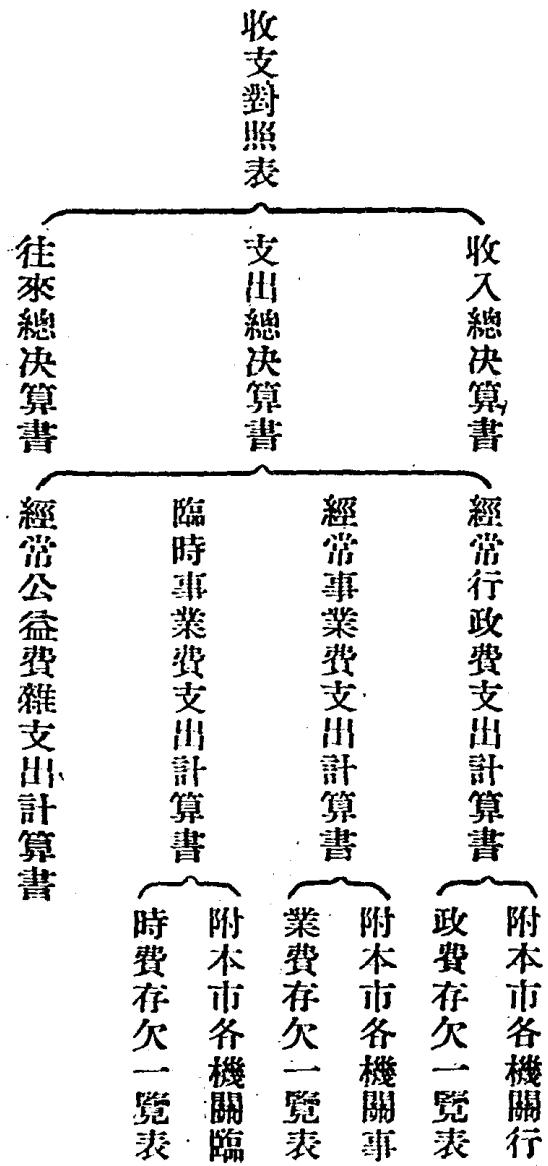 收支對照表
收入總决算書
支出總决算書
往來總决算書
經常行政費支出計算書
經常事業費支出計算書
臨時事業費支出計算書
經常公益費雜支出計算書
附本市各機關行
政費存欠一覽表
附本市各機關事
業費存欠一覽表
附本市各機關臨
時費存欠一覽表